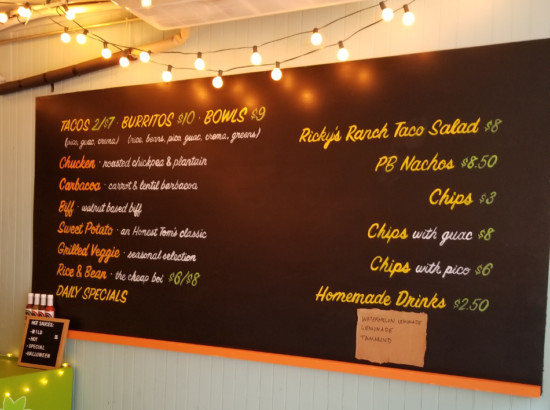 TACOS 2/$7 · BURRITOS $10 · BOWLS $9
(pico, guac, crema) (rice, beans, pico, guac, crema, greens)
Chucken · roasted chickpea & plantain
Carbacoa · carrot & lentil barbacoa
Biff · walnut based biff
Sweet Potato · an Honest Tom's classic
Grilled Veggie · seasonal selection
Rice & Bean · the cheap boi $6/$8
DAILY SPECIALS
Ricky's Ranch Taco Salad $8
PB Nachos $8.50
Chips $3
Chips with guac $8
Chips with pico $6
Homemade Drinks $2.50
WATERMELON LEMONADE
LEMONADE
TAMARIND
HOT SAUCES:
- MILD
- HOT
- SPECIAL
- HALLOWEEN